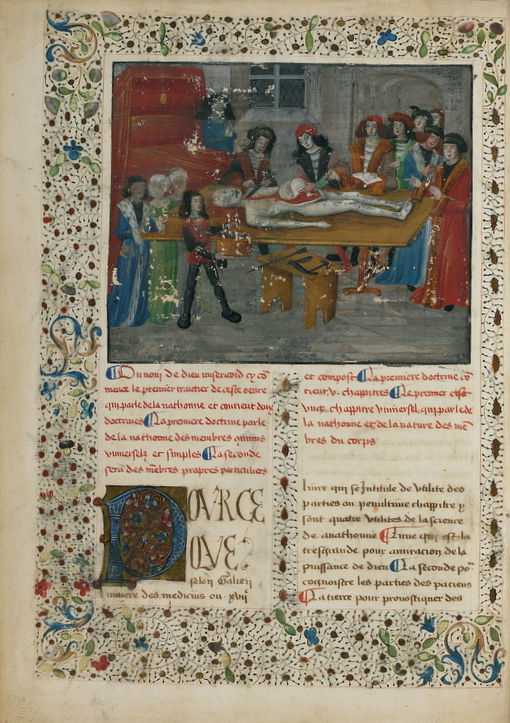 Du nom de dieu misericord cy co
mence le premier traictie de ceste oeuvre
qui parle de la nathomie et contient deux
doctrines La premiere doctrine parle
de la nathomie des membres
universelz et simples La seconde
sera des mēbres propres particuliers
POVRCE
QVE
selon Galien
lumiere des medicins ou xvii
et compost La premiere doctrine cō
tient v. chappitres Le premier est
chappitre universel qui parle de
la nathomie et de la nature des mē
bres du corps
livre qui se Intitule de utilite des
parties ou penultime chappitre y
sont quatre utilites de la science
de anathomie Lune qui est la
tresgrande pour amiracion de la
puissance de dieu La seconde po
cognoistre les parties des paciens
La tierce pour pronostiquer des